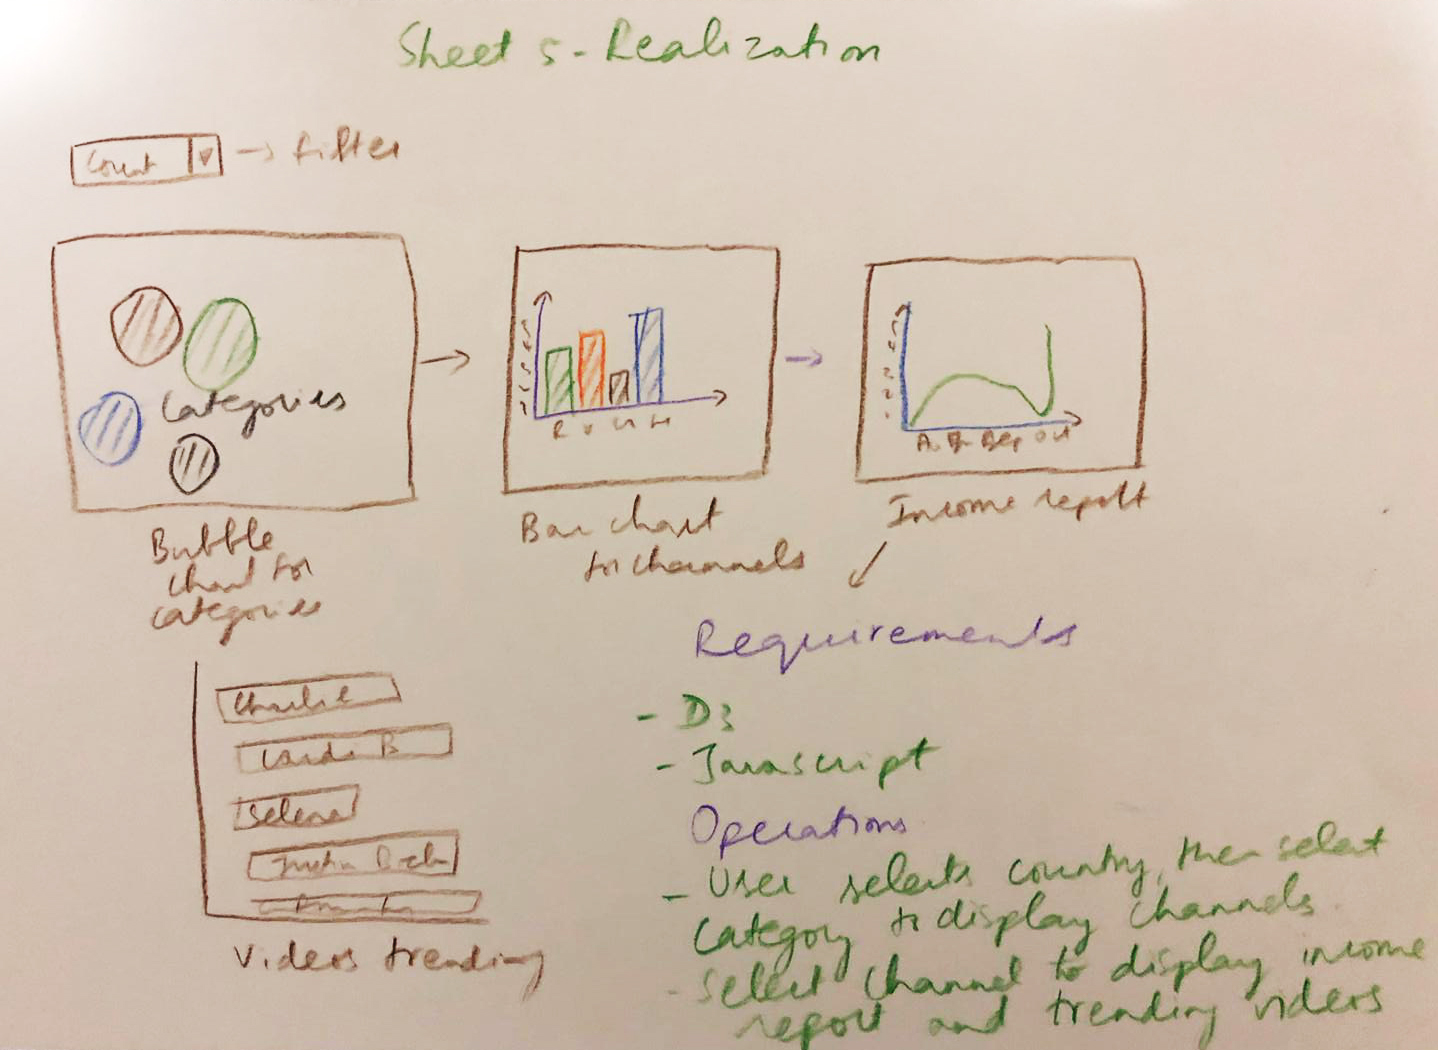 Sheet 5 - Realization
Count → filter
Categories
Bubble
chart for
categories
Bar chart
for channels
Income report
Charlie
Cardi B
Selena
Videos trending
Requirements
- D3
- Javascript
Operations
- User selects country, then select
category to display channels
- Select channel to display income
report and trending videos